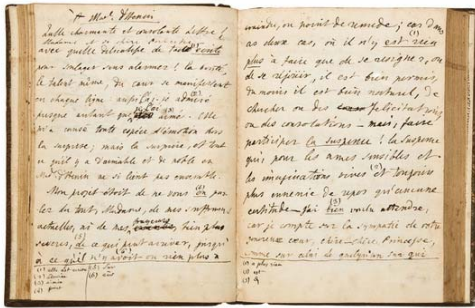 A Mad.e d'Henin
Quelle charmante et consolante lettre !
avec quelle délicatesse de
pour soulager sans alarmer ! la bonté,
le talent même, du cœur se manifestent
en chaque ligne aussi j'ai admiré
presque autant que aimé. Elle
m'a causé toute espèce d'émotion dans
la surprise; mais la surprise, est tout
ce qu'il y a d'aimable et de noble en
Mad.e d'Henin ne se lient pas ensemble.
Mon projet étoit de ne vous par
ler du tout, Madame, de mes souffrances
actuelles, ni de mes bien plus
sévères, de ce qui peut arriver, jusqu'
à ce qu'il n'y auroit ou rien plus à
craindre, ou point de remède; car dans
ces deux cas, où il n'y est rien
plus à faire que de se resigner, ou
de se réjouir, il est bien permis,
du moins il est bien naturel, de
chercher ou des felicitations
ou des consolations — mais, faire
participer la suspense ! la suspense
qui, pour les ames sensibles et
les imaginations vives est toujours
plus ennemie de repos qu'aucune
certitude — j'ai bien voulu attendre,
car je compte sur la sympatie de votre
genereux cœur, chère chère Princesse,
comme sur celui de quelqu'un qui